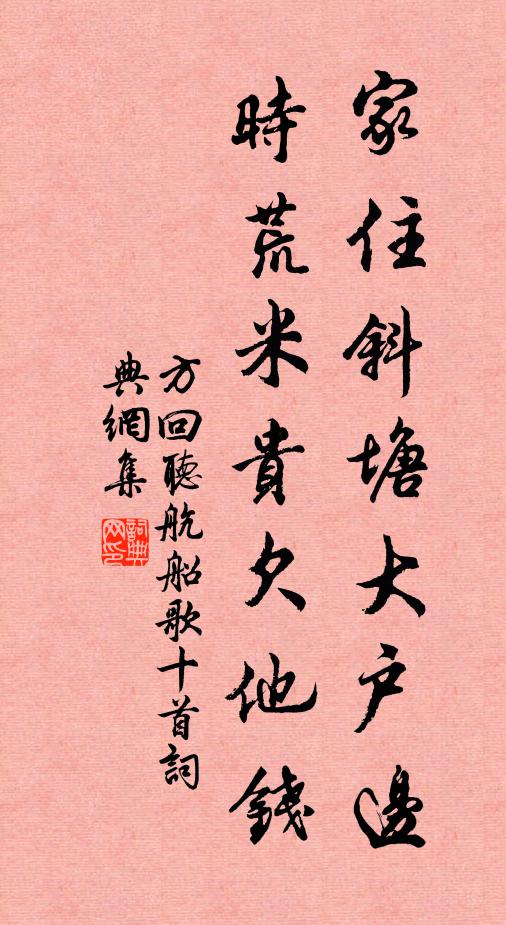 家住斜塘大户邊
時荒米貴欠他錢
方回聽航船歌十首詞
典網集
詞典网印